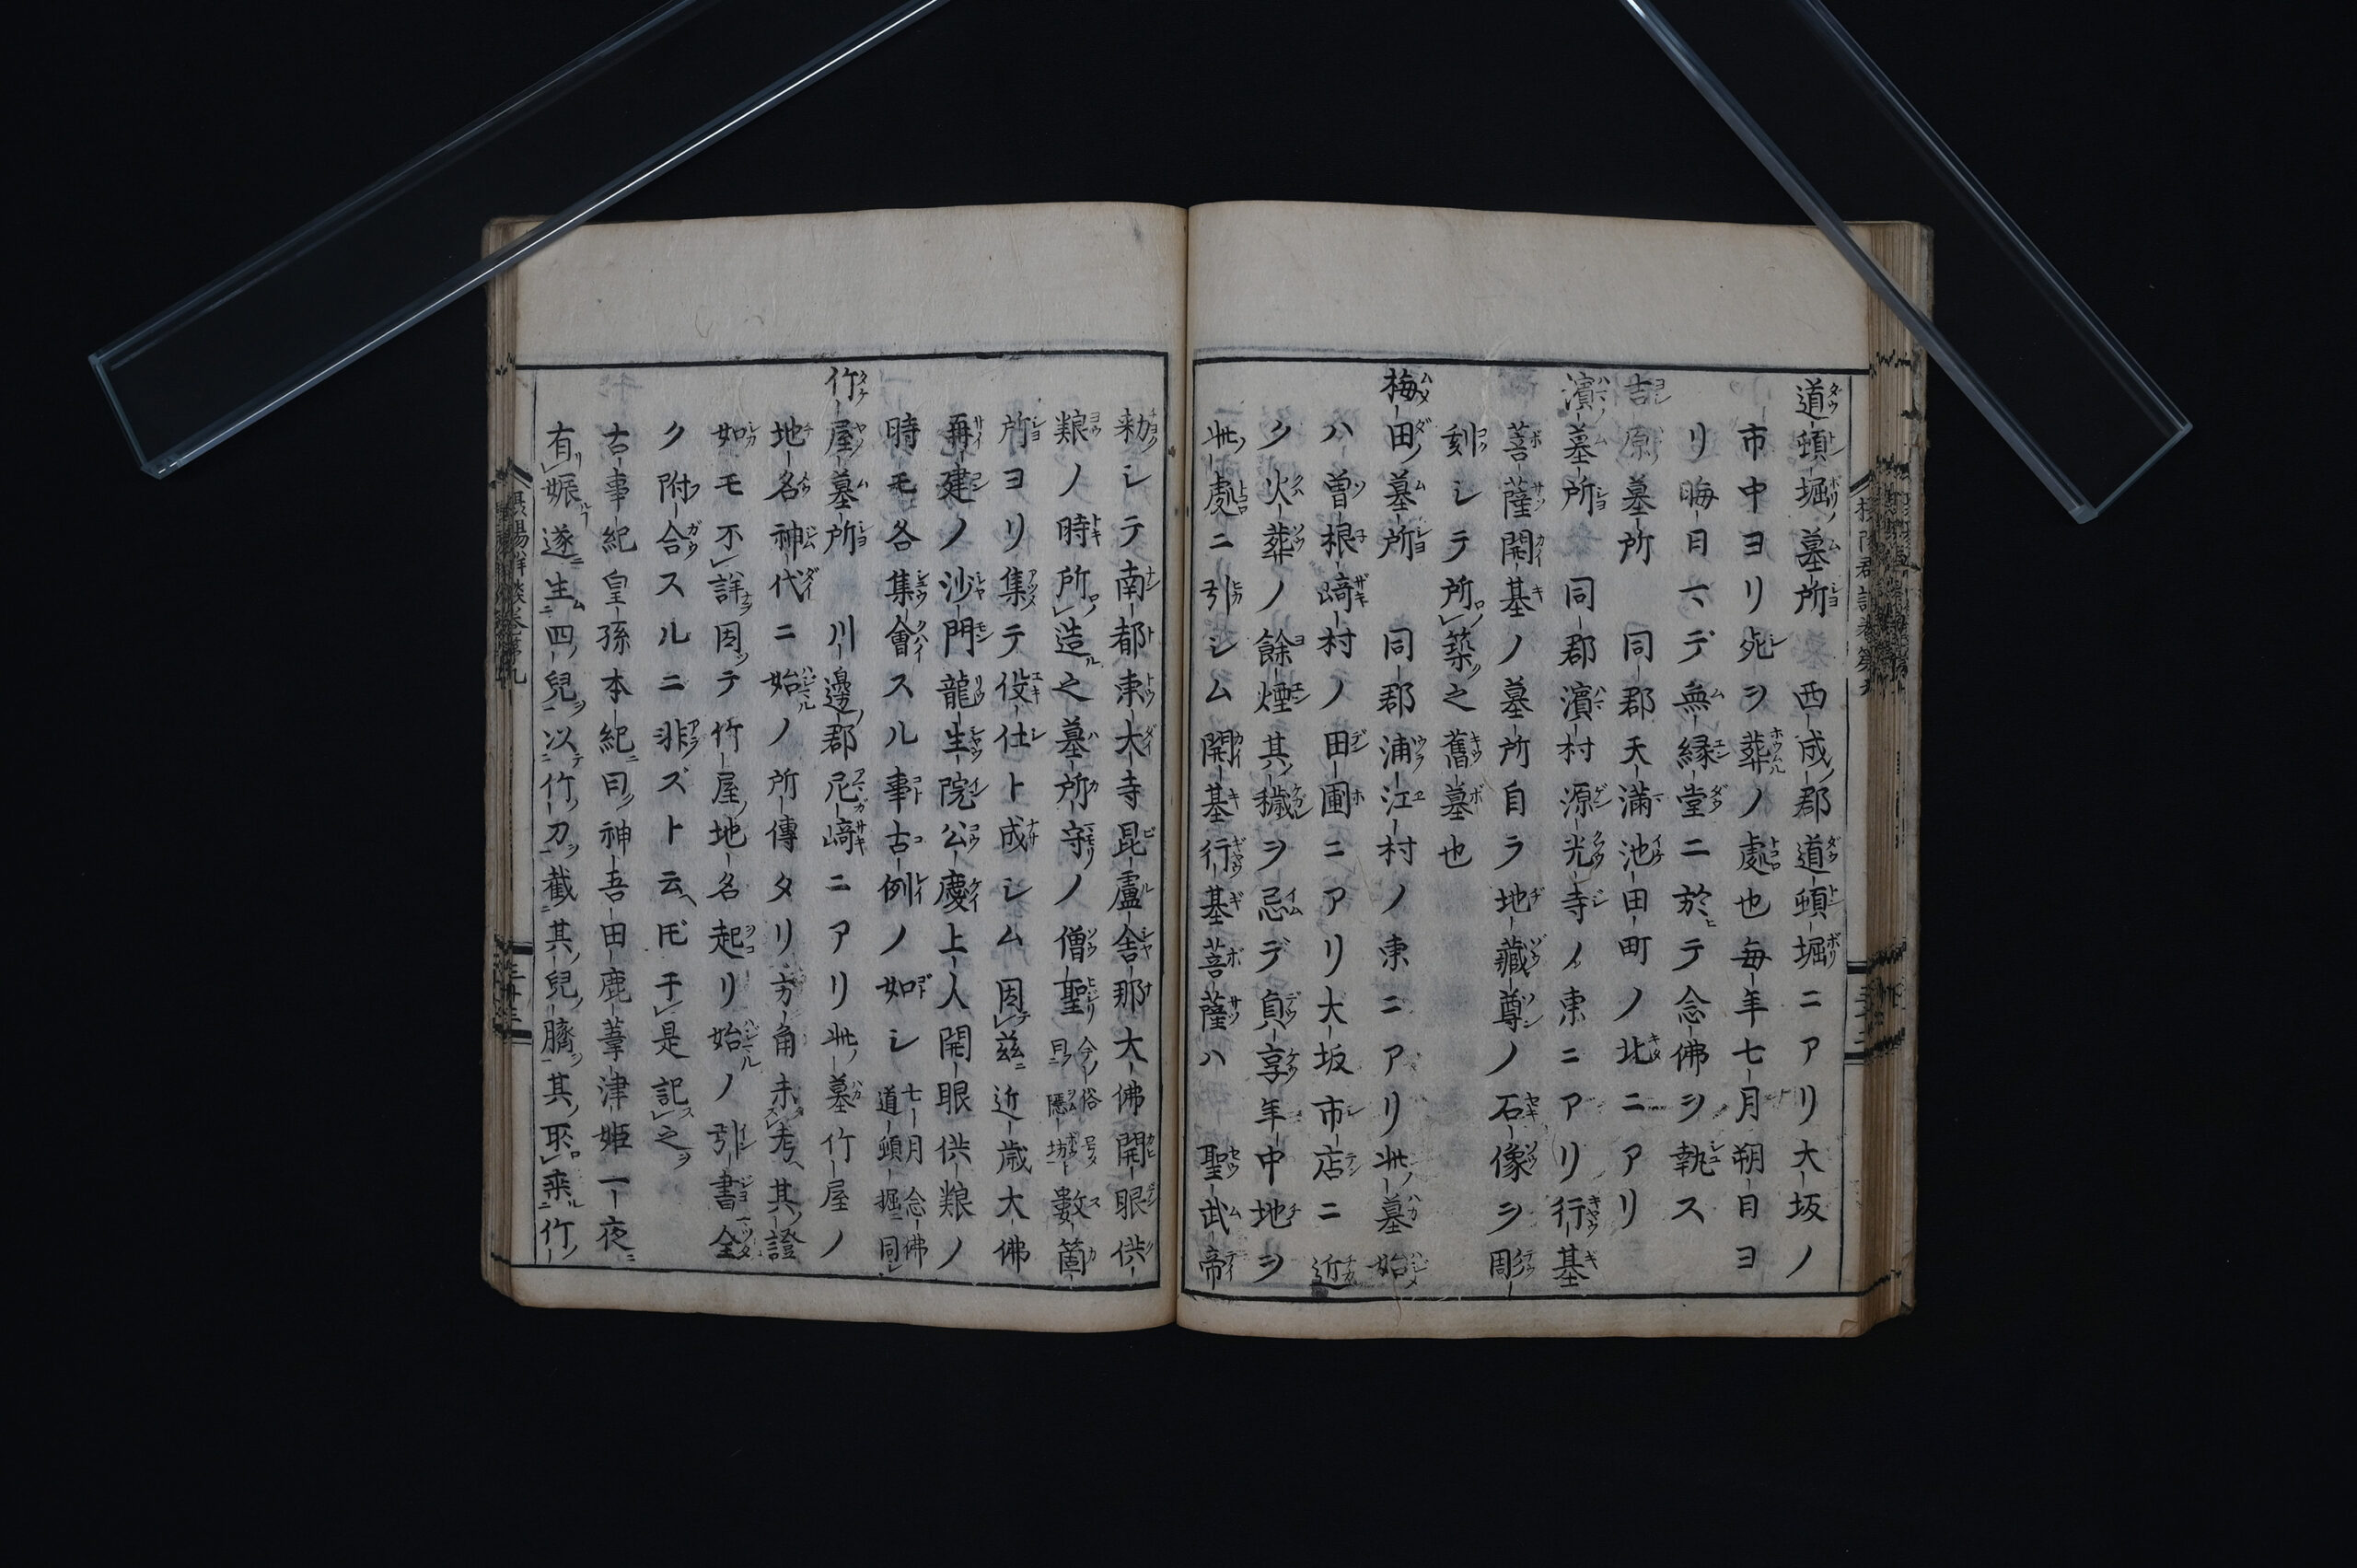 道頓堀墓所　西成郡道頓堀ニアリ大坂ノ
市中ヨリ死ヲ葬ノ處也毎年七月朔日ヨ
リ晦日マデ無縁堂ニ於テ念佛ヲ執ス
吉原墓所　同郡天滿池田町ノ北ニアリ
濱墓所　同郡濱村源光寺ノ東ニアリ行基
菩薩開基ノ墓所自ラ地藏尊ノ石像ヲ彫
刻シテ所築之舊墓也
梅田墓所　同郡浦江村ノ東ニアリ此墓始
ハ曽根﨑村ノ田圃ニアリ大坂市店ニ近
ク火葬ノ餘煙其穢ヲ忌デ貞享年中地ヲ
此處ニ引シム開基行基菩薩ハ　聖武帝
勅シテ南都東大寺昆盧舎那大佛開眼供
粮ノ時所造之墓所守ノ僧聖今俗号曰隱坊數箇
所ヨリ集テ役仕ト成シム　因茲近歳大佛
再建ノ沙門龍生院公慶上人開眼供粮ノ
時モ各集會スル事古例ノ如シ七月念佛道頓堀同
竹屋墓所　川邊郡尼﨑ニアリ此墓竹屋ノ
地名神代ニ始ノ所傳タリ方角未考其證
如モ不詳因テ竹屋地名起リ始ノ引書全
ク附合スルニ非ズト云𪜈于是記之
古事紀皇孫本紀曰神吾田鹿葦津姫一夜
有娠遂生四兒以竹刀截其兒臍其所棄竹
攝陽群談巻第九